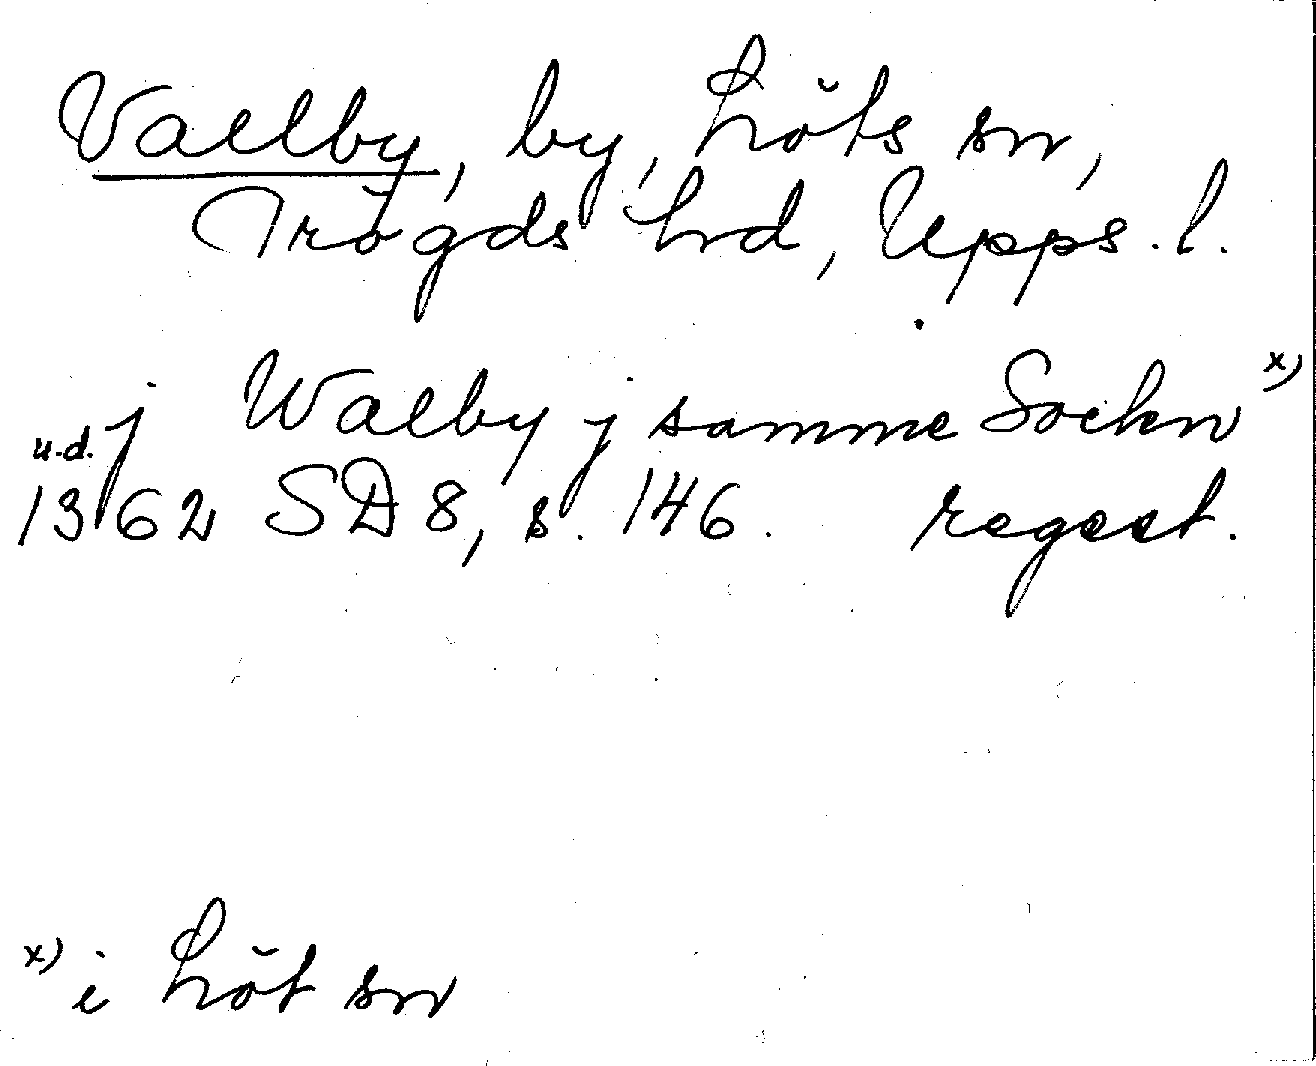 Vallby, by, Löts sn,
Trögds hd, Upps. l.
j Walby j samme Sochn x)
u.d.
1362 SD 8, s. 146. regest.
x) i Löt sn